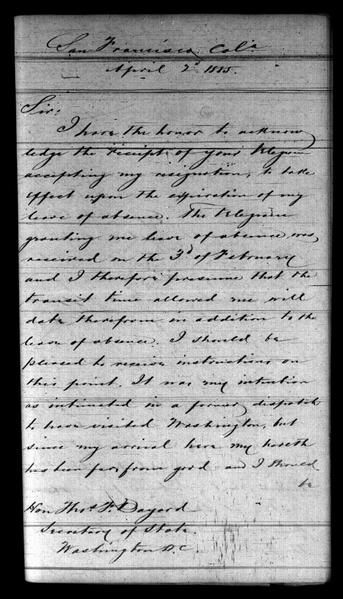 San Francisco Cal^a
April 2^d 1885.
Sir:
I have the honor to acknow
ledge the receipt of your telegram
accepting my resignation, to take
effect upon the expiration of my
leave of absence. The telegram
granting me leave of absence was
received on the 3^d of February
and I therefore presume that the
transit time allowed me will
date therefrom in addition to the
leave of absence. I should be
pleased to receive instructions on
this point. It was my intention
as intimated in a former dispatch
to have visited Washington, but
since my arrival here my health
has been far from good and I should
be
Hon Thos F. Bayard
Secretary of State
Washington D.C.